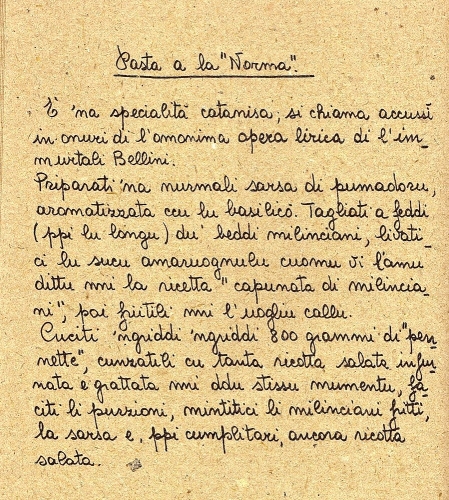 Pasta a la "Norma".
E' 'na specialità catanisa, si chiama accussì
in onuri di l'omonima opera lirica di l'im-
murtali Bellini.
Priparati 'na nurmali sarsa di pumadoru,
aromatizzata ccu lu basilicò. Tagliati a feddi
(ppi lu longu) du' beddi milinciani, livati-
ci lu sucu amaruognulu cuomu vi l'amu
dittu nni la ricetta "capunata di milincia-
ni", poi friitili nni l'uogliu callu.
Cuciti 'ngriddi 'ngriddi 800 grammi di "pen-
nette", cunzatili cu tanta ricotta salata infur-
nata e grattata nni ddu stissu mumentu, fa-
citi li purzioni, mintitici li milinciani fritti,
la sarsa e, ppi cumplitari, ancora ricotta
salata.